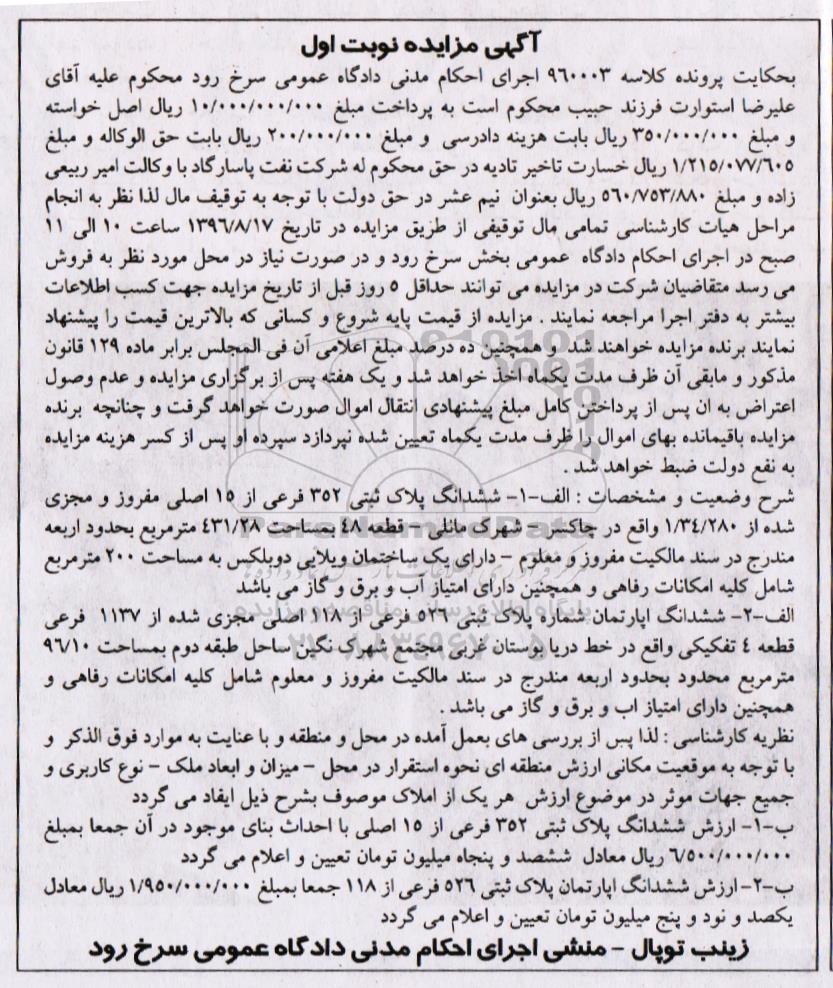 آگهی مزایده نوبت اول
بحکایت پرونده کلاسه ۹۶۰۰۰۳ اجرای احکام مدنی دادگاه عمومی سرخ رود محکوم علیه آقای
علیرضا استوارت فرزند حبیب محکوم است به پرداخت مبلغ ۱۰/۰۰۰/۰۰۰/۰۰۰ ریال اصل خواسته
و مبلغ ۳۵۰/۰۰۰/۰۰۰ ریال بابت هزینه دادرسی و مبلغ ۲۰۰/۰۰۰/۰۰۰ ریال بابت حق الوکاله و مبلغ
۱/۲۱۵/۰۷۷/۶۰۵ ریال خسارت تاخیر تادیه در حق محکوم له شرکت نفت پاسارگاد با وکالت امیر ربیعی
زاده و مبلغ ۵۶۰/۷۵۳/۸۸۰ ریال بعنوان نیم عشر در حق دولت با توجه به توقیف مال لذا نظر به انجام
مراحل هیات کارشناسی تمامی مال توقیفی از طریق مزایده در تاریخ ۱۳۹۶/۸/۱۷ ساعت ۱۰ الی ۱۱
صبح در اجرای احکام دادگاه عمومی بخش سرخ رود و در صورت نیاز در محل مورد نظر به فروش
می رسد متقاضیان شرکت در مزایده می توانند حداقل ۵ روز قبل از تاریخ مزایده جهت کسب اطلاعات
بیشتر به دفتر اجرا مراجعه نمایند . مزایده از قیمت پایه شروع و کسانی که بالاترین قیمت را پیشنهاد
نمایند برنده مزایده خواهند شد و همچنین ده درصد مبلغ اعلامی آن فی المجلس برابر ماده ۱۲۹ قانون
مذکور و مابقی آن ظرف مدت یکماه اخذ خواهد شد و یک هفته پس از برگزاری مزایده و عدم وصول
اعتراض به ان پس از پرداختن کامل مبلغ پیشنهادی انتقال اموال صورت خواهد گرفت و چنانچه برنده
مزایده باقیمانده بهای اموال را ظرف مدت یکماه تعیین شده نپردازد سپرده او پس از کسر هزینه مزایده
به نفع دولت ضبط خواهد شد .
شرح وضعیت و مشخصات : الف-۱- ششدانگ پلاک ثبتی ۳۵۲ فرعی از ۱۵ اصلی مفروز و مجزی
شده از ۱/۳۴/۲۸۰ واقع در چاکسر - شهرک مائلی - قطعه ۴۸ بمساحت ۴۳۱/۲۸ مترمربع بحدود اربعه
مندرج در سند مالکیت مفروز و معلوم - دارای یک ساختمان ویلایی دوبلکس به مساحت ۲۰۰ مترمربع
شامل کلیه امکانات رفاهی و همچنین دارای امتیاز آب و برق و گاز می باشد
الف-۲- ششدانگ اپارتمان شماره پلاک ثبتی ۵۲۶ فرعی از ۱۱۸ اصلی مجزی شده از ۱۱۳۷ فرعی
قطعه ۴ تفکیکی واقع در خط دریا بوستان غربی مجتمع شهرک نگین ساحل طبقه دوم بمساحت ۹۶/۱۰
مترمربع محدود بحدود اربعه مندرج در سند مالکیت مفروز و معلوم شامل کلیه امکانات رفاهی و
همچنین دارای امتیاز اب و برق و گاز می باشد .
نظریه کارشناسی : لذا پس از بررسی های بعمل آمده در محل و منطقه و با عنایت به موارد فوق الذکر و
با توجه به موقعیت مکانی ارزش منطقه ای نحوه استقرار در محل - میزان و ابعاد ملک - نوع کاربری و
جمیع جهات موثر در موضوع ارزش هر یک از املاک موصوف بشرح ذیل ایفاد می گردد
ب-۱- ارزش ششدانگ پلاک ثبتی ۳۵۲ فرعی از ۱۵ اصلی با احداث بنای موجود در آن جمعا بمبلغ
۶/۵۰۰/۰۰۰/۰۰۰ ریال معادل ششصد و پنجاه میلیون تومان تعیین و اعلام می گردد
ب-۲- ارزش ششدانگ اپارتمان پلاک ثبتی ۵۲۶ فرعی از ۱۱۸ جمعا بمبلغ ۱/۹۵۰/۰۰۰/۰۰۰ ریال معادل
یکصد و نود و پنج میلیون تومان تعیین و اعلام می گردد
زینب توپال - منشی اجرای احکام مدنی دادگاه عمومی سرخ رود